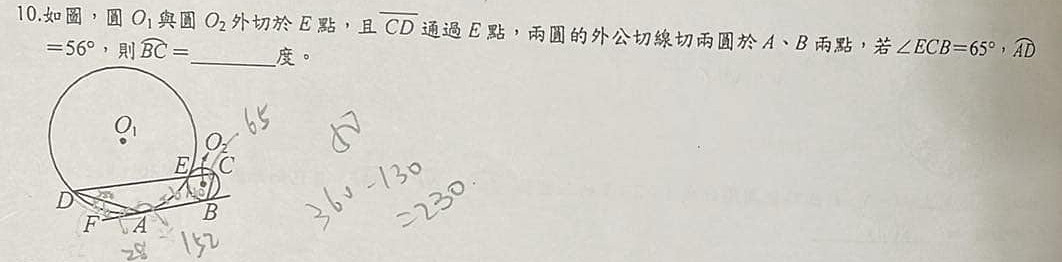 10.如圖，圓 O₁與圓 O₂外切於 E 點，且 CD 通過 E 點，兩圓的外公切線切兩圓於 A、B 兩點，若∠ECB=65°，AD
=56°，則BC=______度。
65
O₁
O₂
E
C
360-130
=230.
D
F
A
B
28
152